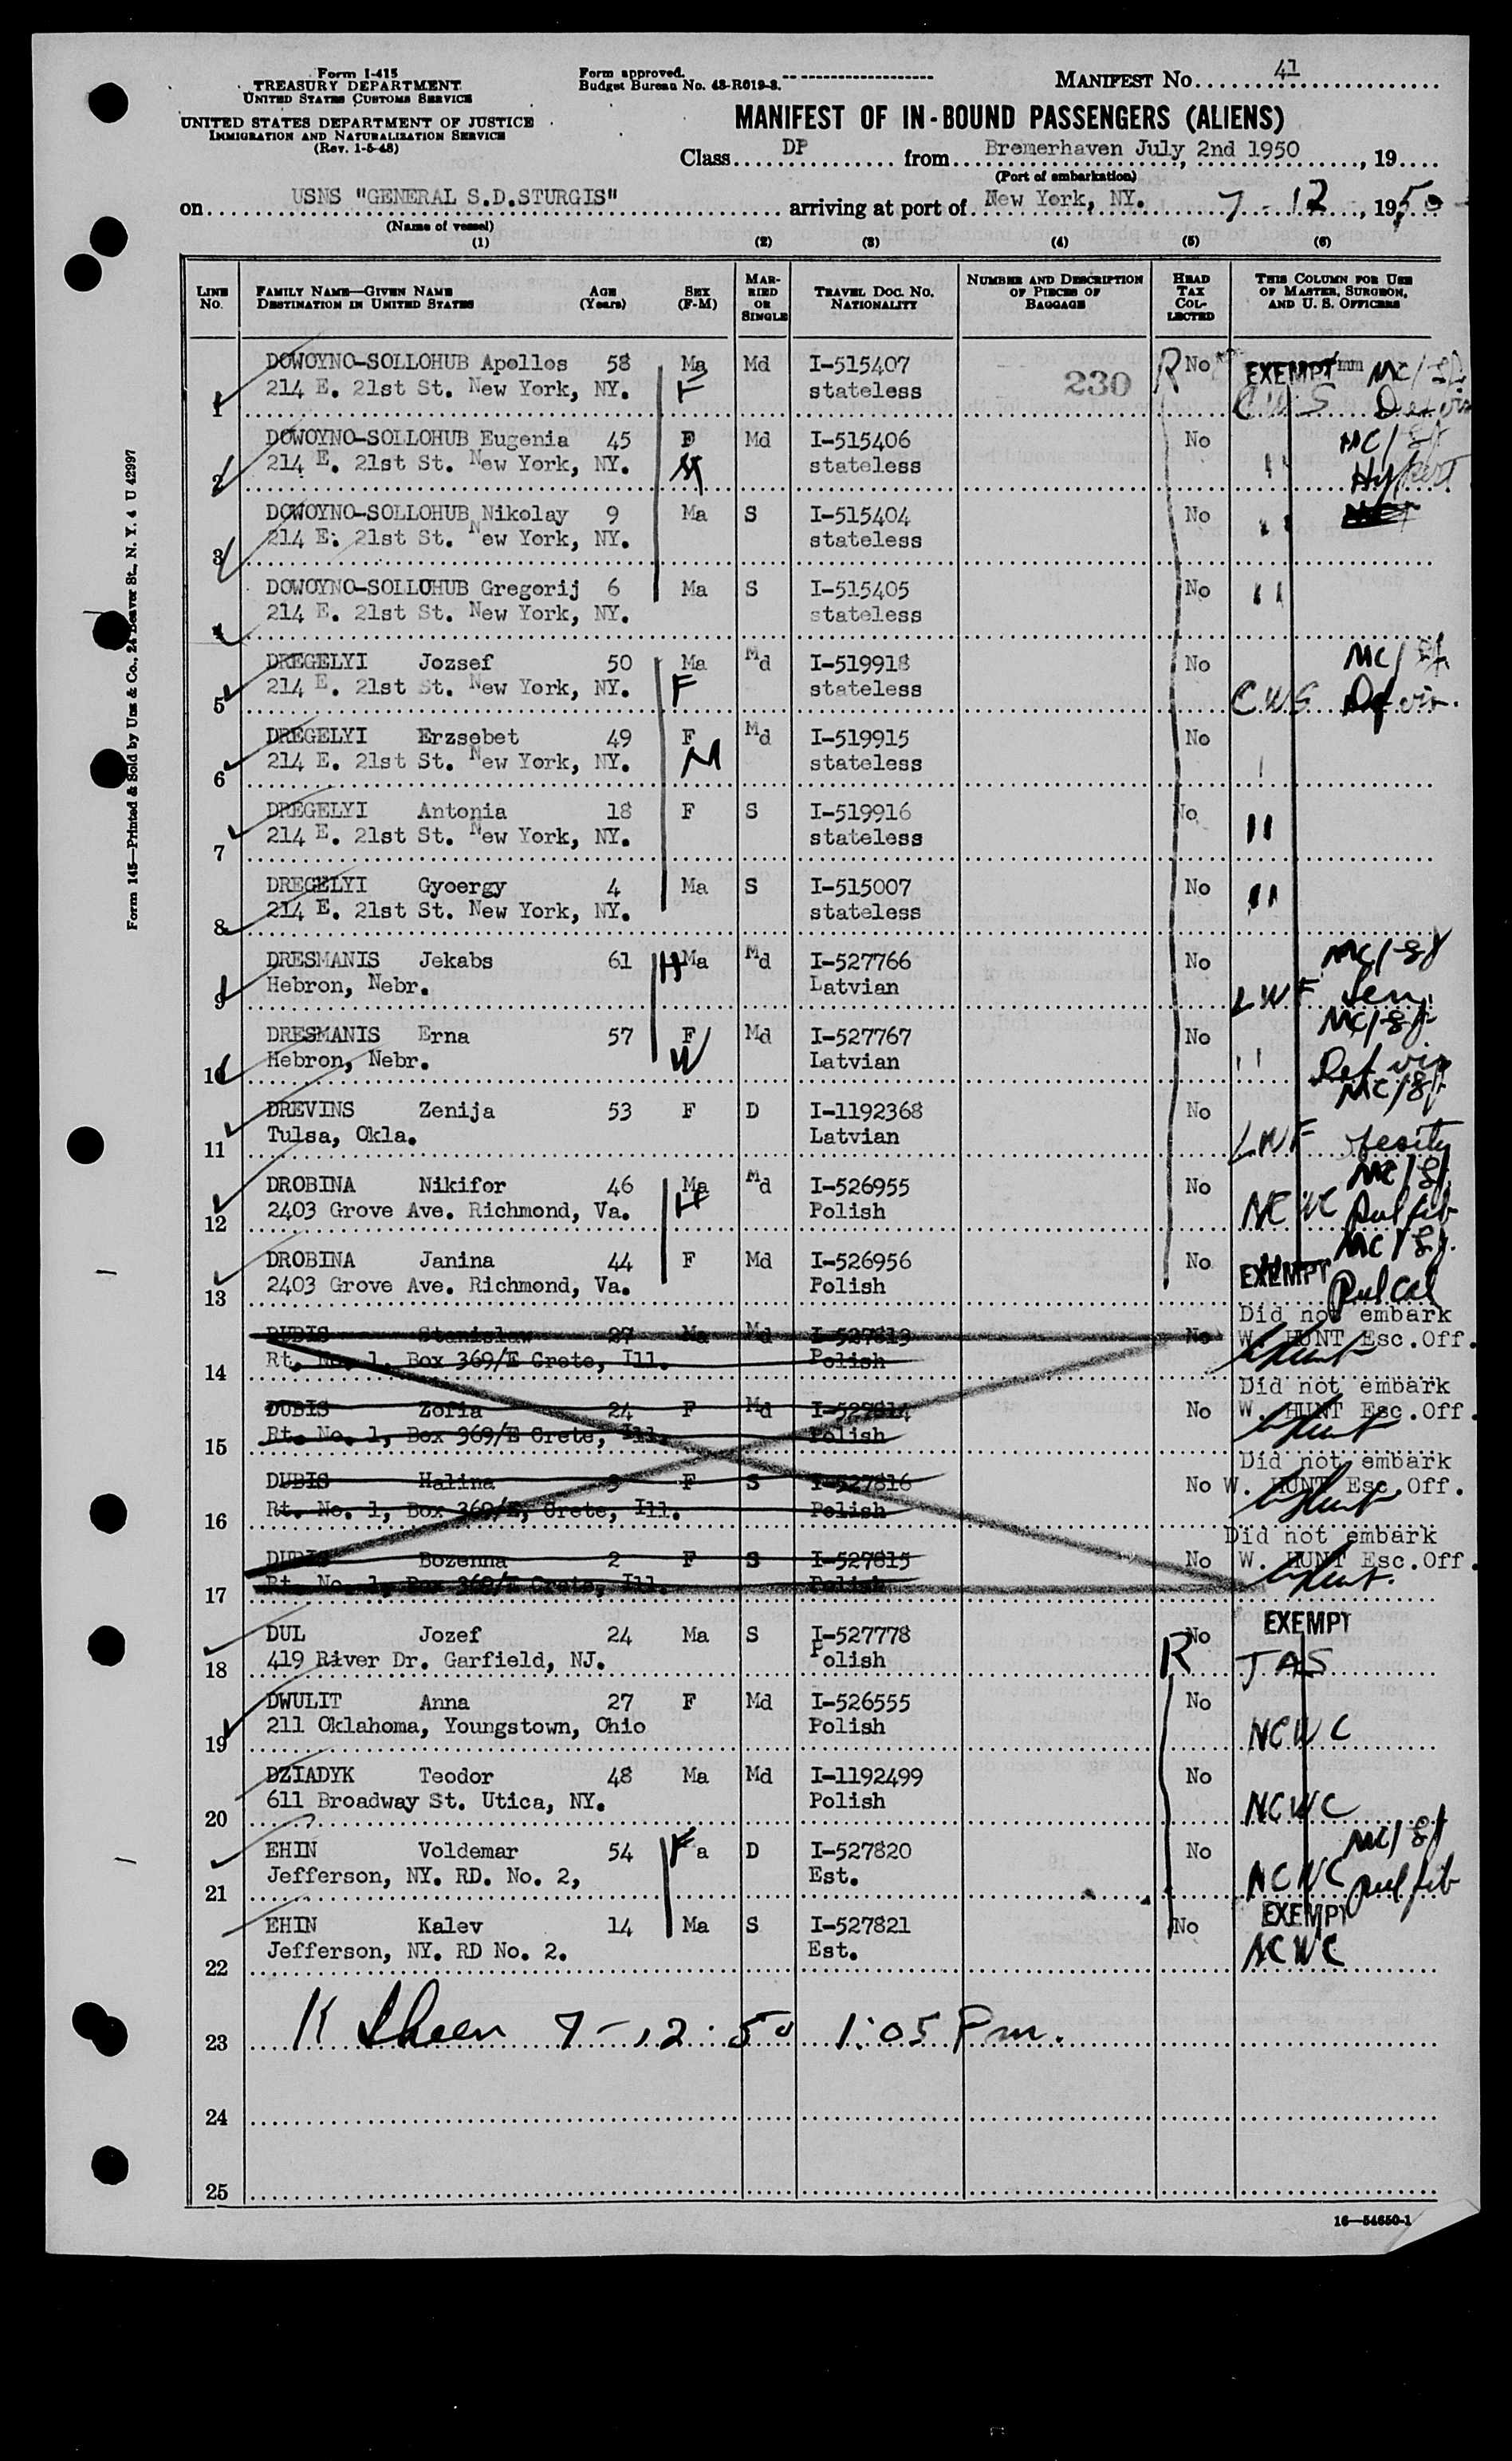 Form I-415
TREASURY DEPARTMENT
UNITED STATES CUSTOMS SERVICE
UNITED STATES DEPARTMENT OF JUSTICE
IMMIGRATION AND NATURALIZATION SERVICE
(Rev. 1-5-48)
Form approved.
Budget Bureau No. 43-R019-3.
MANIFEST NO. 41
MANIFEST OF IN-BOUND PASSENGERS (ALIENS)
Class DP from Bremerhaven July 2nd 1950, 19
(Port of embarkation)
on USNS "GENERAL S.D.STURGIS" arriving at port of New York, NY. 7-12, 1950
(Name of vessel)
(1) (2) (3) (4) (5) (6)
LINE NO. FAMILY NAME—GIVEN NAME DESTINATION IN UNITED STATES AGE (Years) SEX (F-M) MARRIED OR SINGLE TRAVEL DOC. NO. NATIONALITY NUMBER AND DESCRIPTION OF PIECES OF BAGGAGE HEAD TAX COLLECTED THIS COLUMN FOR USE OF MASTER, SURGEON, AND U. S. OFFICERS
DOWOYNO-SOLLOHUB Apollos 58 Ma Md I-515407 230 R No EXEMPT MC/
1 214 E. 21st St. New York, NY. F stateless CWS
DOWOYNO-SOLLOHUB Eugenia 45 F Md I-515406 No MC/
2 214 E. 21st St. New York, NY. M stateless " Hypert
DOWOYNO-SOLLOHUB Nikolay 9 Ma S I-515404 No "
3 214 E. 21st St. New York, NY. stateless
DOWOYNO-SOLLOHUB Gregorij 6 Ma S I-515405 No "
4 214 E. 21st St. New York, NY. stateless
DREGELYI Jozsef 50 Ma Md I-519918 No MC/
5 214 E. 21st St. New York, NY. F stateless CWS Def vis.
DREGELYI Erzsebet 49 F Md I-519915 No
6 214 E. 21st St. New York, NY. M stateless
DREGELYI Antonia 18 F S I-519916 No "
7 214 E. 21st St. New York, NY. stateless
DREGELYI Gyoergy 4 Ma S I-515007 No "
8 214 E. 21st St. New York, NY. stateless
DRESMANIS Jekabs 61 H Ma Md I-527766 No MC/
9 Hebron, Nebr. Latvian LWF Sen.
DRESMANIS Erna 57 F Md I-527767 No MC/
10 Hebron, Nebr. W Latvian " Def vis
DREVINS Zenija 53 F D I-1192368 No MC/
11 Tulsa, Okla. Latvian LWF
DROBINA Nikifor 46 Ma Md I-526955 No MC/
12 2403 Grove Ave. Richmond, Va. H Polish NCWC Pul fib
DROBINA Janina 44 F Md I-526956 No MC/
13 2403 Grove Ave. Richmond, Va. Polish EXEMPT Pul cal
DUBIS Stanislaw 27 Ma Md I-527813 No Did not embark
14 Rt. No. 1, Box 369/E Crete, Ill. Polish W. HUNT Esc.Off.
DUBIS Zofia 24 F Md I-527814 No Did not embark
15 Rt. No. 1, Box 369/E Crete, Ill. Polish W. HUNT Esc.Off.
DUBIS Halina 3 F S I-527816 No Did not embark
16 Rt. No. 1, Box 369/E, Crete, Ill. Polish W. HUNT Esc.Off.
DUBIS Bozenna 2 F S I-527815 No Did not embark
17 Rt. No. 1, Box 369/E Crete, Ill. Polish W. HUNT Esc.Off.
DUL Jozef 24 Ma S I-527778 R No EXEMPT
18 419 River Dr. Garfield, NJ. Polish JAS
DWULIT Anna 27 F Md I-526555 No
19 211 Oklahoma, Youngstown, Ohio Polish NCWC
DZIADYK Teodor 48 Ma Md I-1192499 No
20 611 Broadway St. Utica, NY. Polish NCWC
EHIN Voldemar 54 Fa D I-527820 No MC/
21 Jefferson, NY. RD. No. 2, Est. NCWC Pul fib
EHIN Kalev 14 Ma S I-527821 No EXEMPT
22 Jefferson, NY. RD No. 2. Est. NCWC
23 K Sheen 7-12-50 1:05 Pm.
24
25
16—54650-1
Form 145—Printed & Sold by Unz & Co., 24 Beaver St., N. Y. 4 U 42997